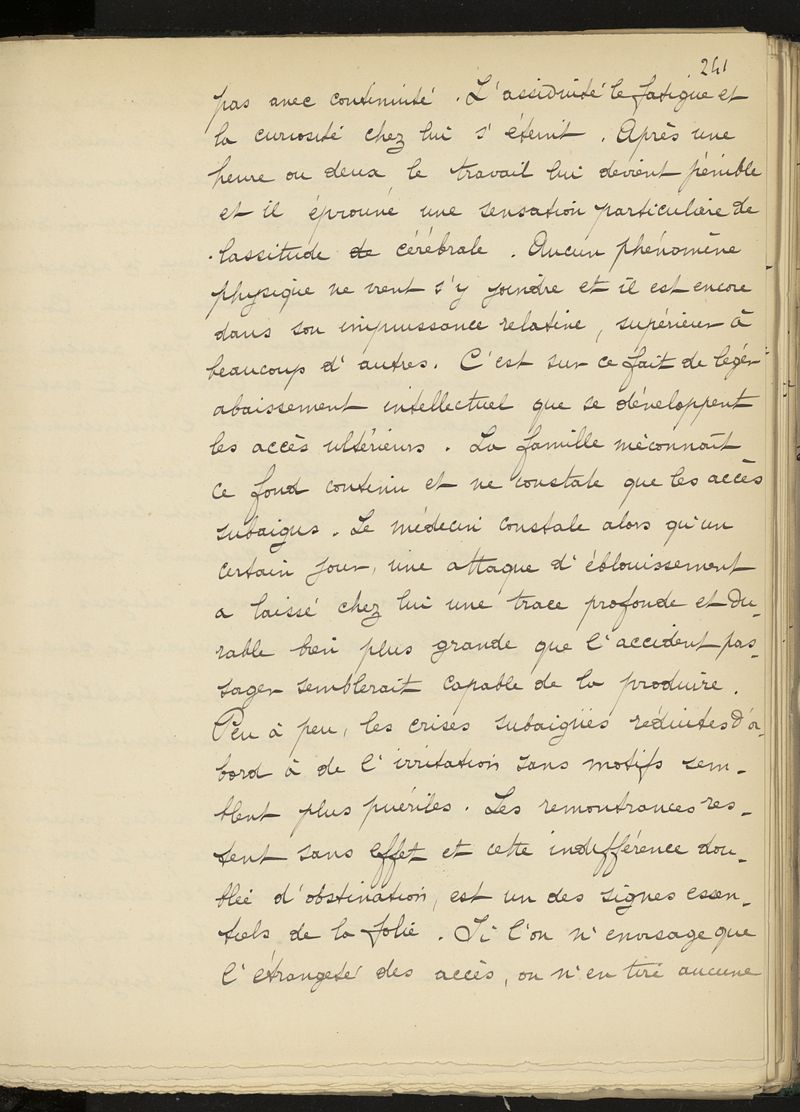 241
pas avec continuité. L'assiduité le fatigue et
la curiosité chez lui s'éteint. Après une
heure ou deux le travail lui devient pénible
et il éprouve une sensation particulière de
lassitude de cérébrale. Aucun phénomène
physique ne vient s'y joindre et il est encore
dans son impuissance relative, supérieur à
beaucoup d'autres. C'est sur ce fait de léger
abaissement intellectuel que se développent
les accès ultérieurs. La famille méconnaît
ce fond contenu et ne constate que les accès
subaigus. Le médecin constate alors qu'un
certain jour, une attaque d'éblouissement
a laissé chez lui une trace profonde et du-
rable bien plus grande que l'accident pas-
sager semblerait capable de la produire.
Peu à peu, les crises subaigües réduites d'a-
bord à de l'irritation sans motifs sem-
blent plus puériles. Les remontrances res-
tent sans effet et cette indifférence dou-
blée d'obstination, est un des signes essen-
tiels de la folie. Si l'on n'envisage que
l'étrangeté des accès, on n'en tire aucune